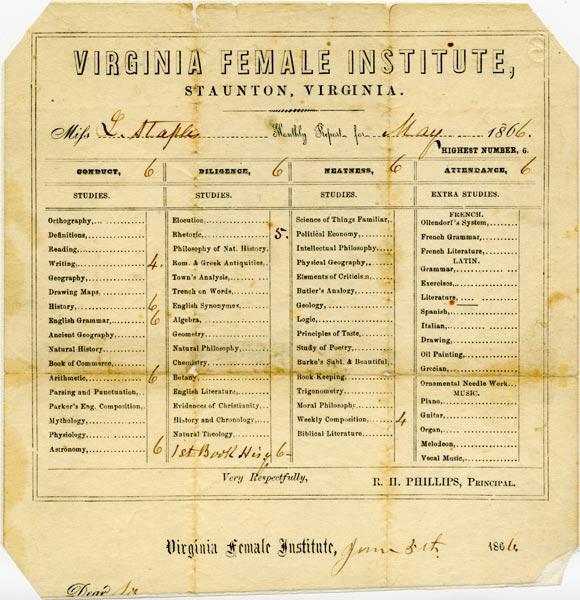 VIRGINIA FEMALE INSTITUTE,
STAUNTON, VIRGINIA.
Miss L. Staples Monthly Report for May 1866.
HIGHEST NUMBER, 6.
CONDUCT, 6 DILIGENCE, 6 NEATNESS, 6 ATTENDANCE, 6
STUDIES. STUDIES. STUDIES. EXTRA STUDIES.
Orthography,
Definitions,
Reading,
Writing, 4.
Geography,
Drawing Maps,
History, 6
English Grammar, 6
Ancient Geography
Natural History
Book of Commerce,
Arithmetic, 6
Parsing and Punctuation,
Parker's Eng. Composition,
Mythology,
Physiology
Astronomy, 6
Elocution,
Rhetoric, 5.
Philosophy of Nat. History,
Rom. & Greek Antiquities,
Town's Analysis,
Trench on Words,
English Synonyms,
Algebra,
Geometry,
Natural Philosophy,
Chemistry,
Botany,
English Literature,
Evidences of Christianity,
History and Chronology,
Natural Theology,
1st Book His'y 6
Science of Things Familiar,
Political Economy,
Intellectual Philosophy,
Physical Geography,
Elements of Criticism,
Butler's Analogy,
Geology,
Logic,
Principles of Taste,
Study of Poetry,
Burke's Subl. & Beautiful,
Book-Keeping,
Trigonometry,
Moral Philosophy,
Weekly Composition, 4
Biblical Literature,
FRENCH.
Ollendorf's System,
French Grammar,
French Literature,
LATIN.
Grammar,
Exercises,
Literature,
Spanish,
Italian,
Drawing,
Oil Painting,
Grecian,
Ornamental Needle Work
MUSIC.
Piano,
Guitar,
Organ,
Melodeon,
Vocal Music,
Very Respectfully,
R. H. PHILLIPS, PRINCIPAL.
Virginia Female Institute, June 5th 1866.
Dear Sir